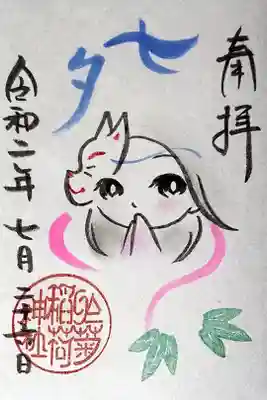 奉拝
七夕
令和二年 七月二十五日
於菊
稲荷
神社